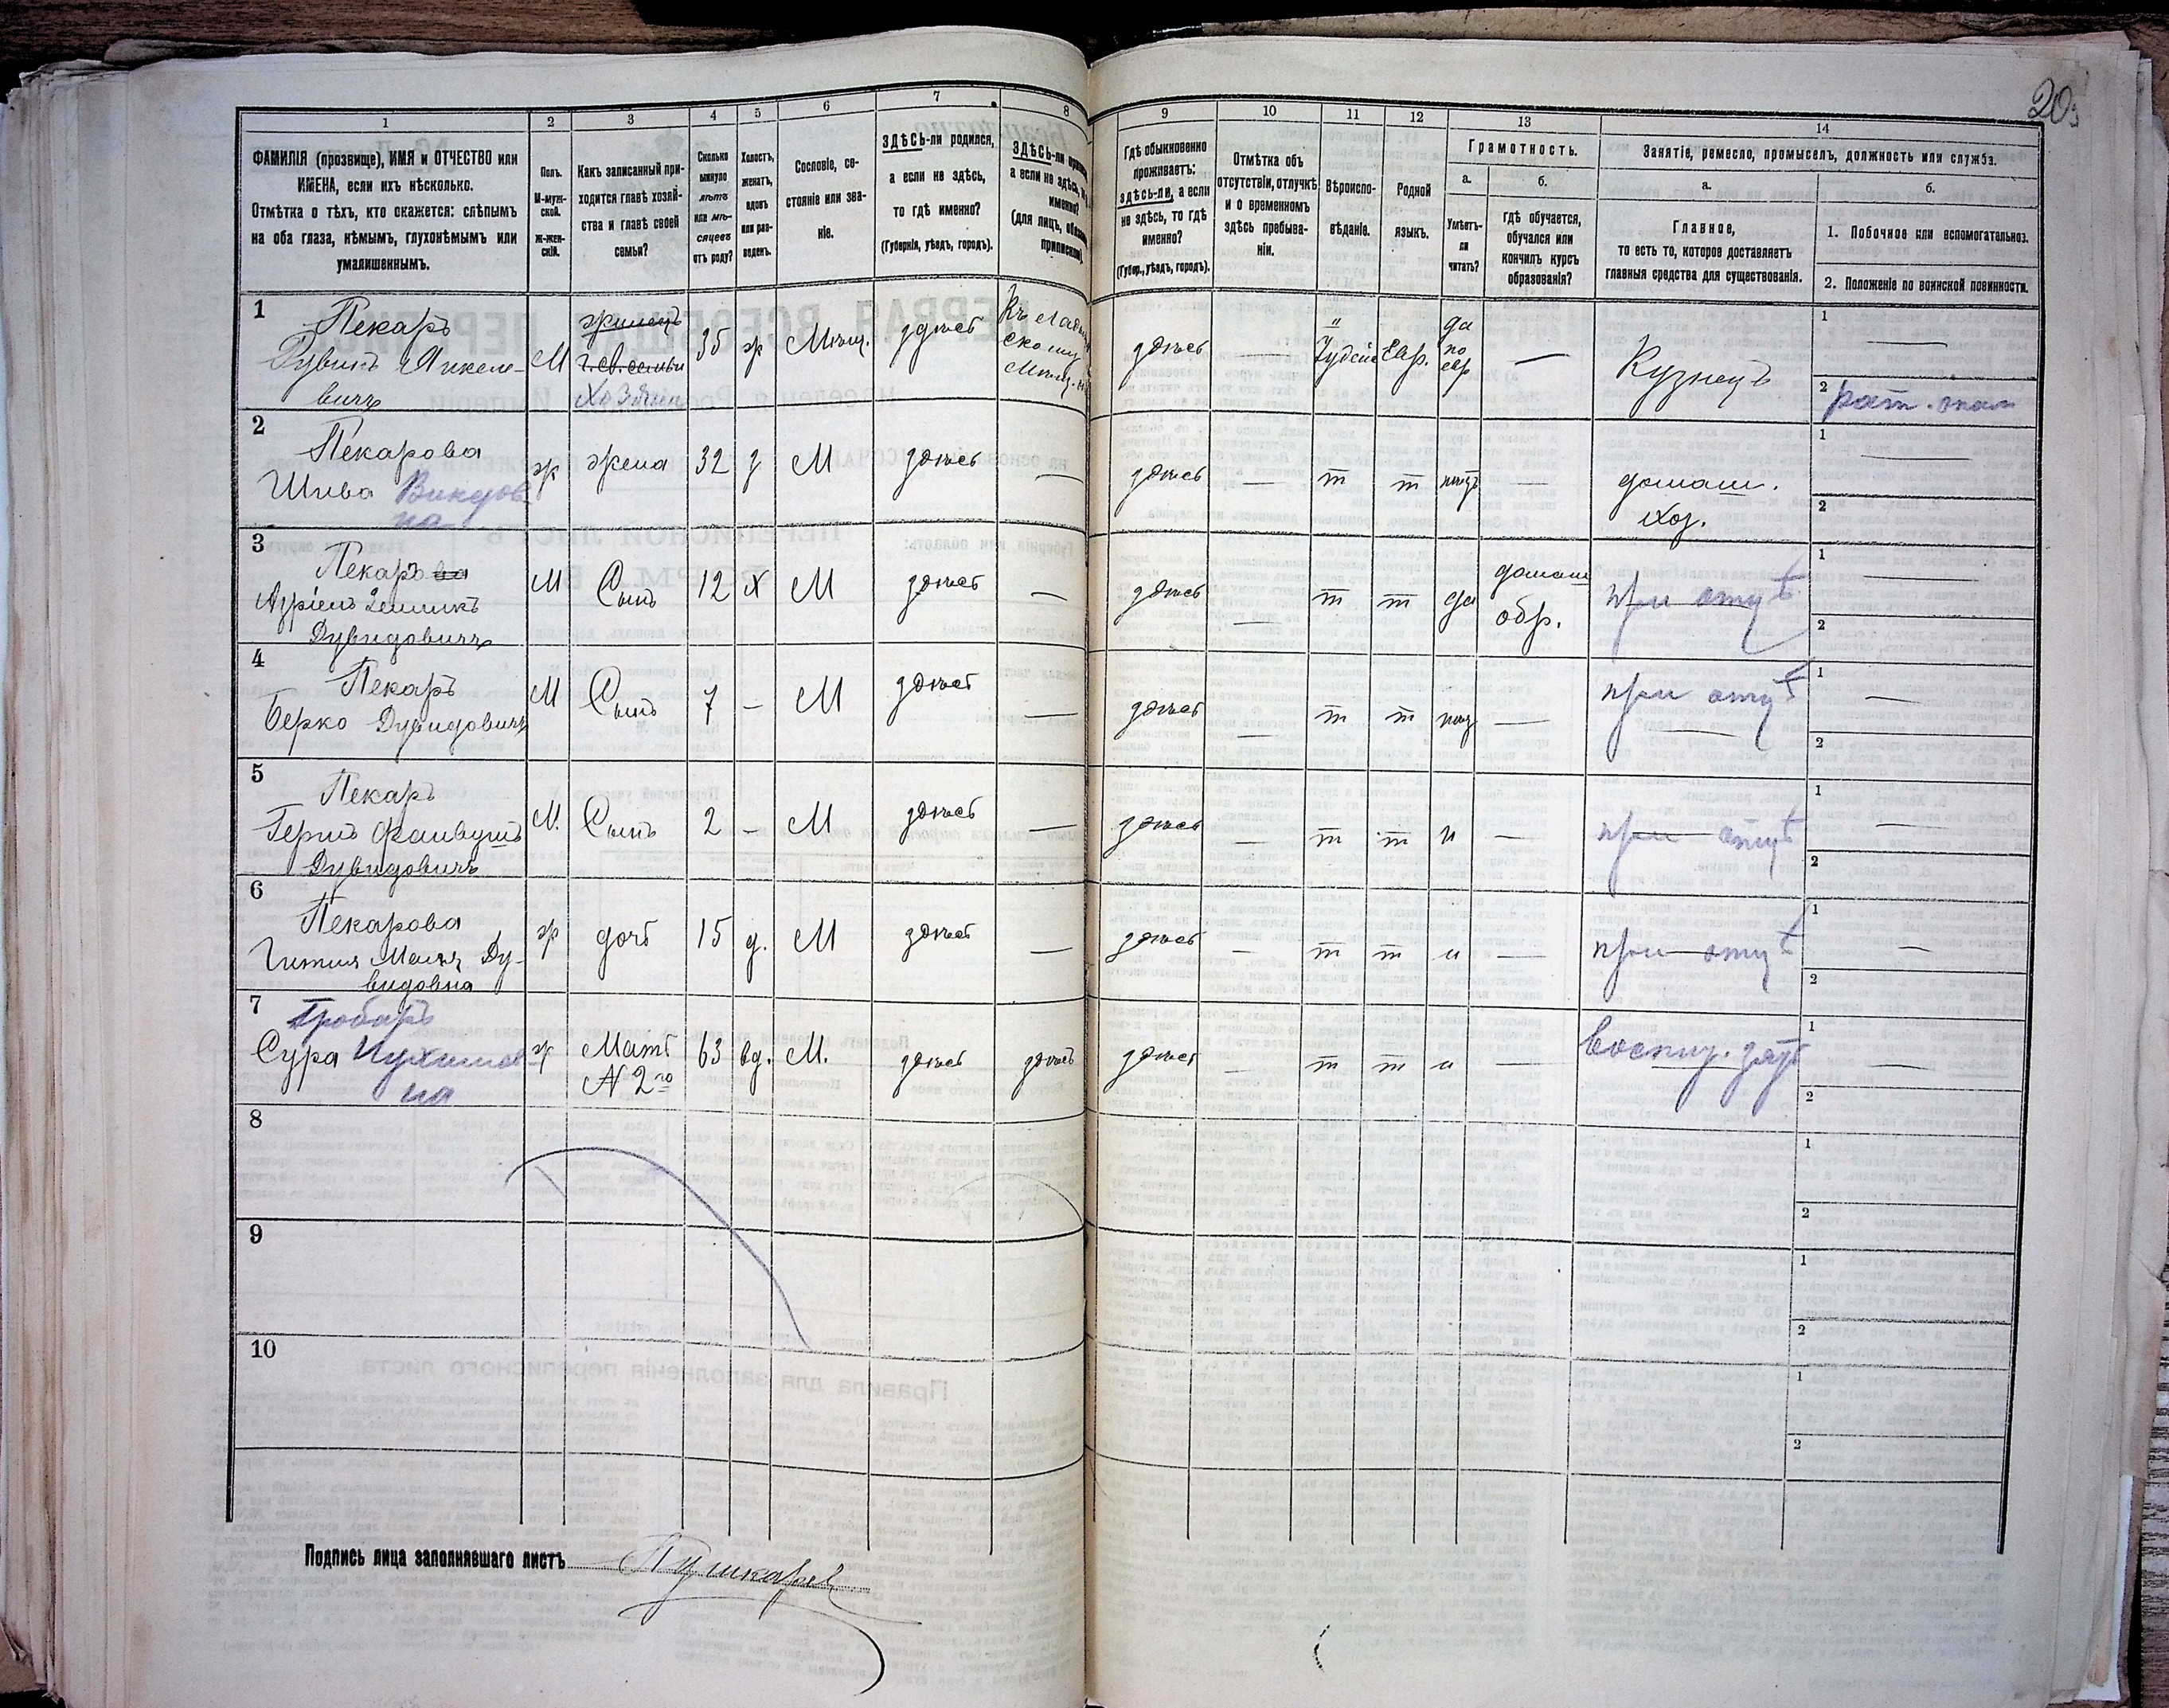 20
1
2
3
4
5
6
7
8
9
10
11
12
13
14
ФАМИЛІЯ (прозвище), ИМЯ и ОТЧЕСТВО или
ИМЕНА, если ихъ нѣсколько.
Отмѣтка о тѣхъ, кто окажется: слѣпымъ
на оба глаза, нѣмымъ, глухонѣмымъ или
умалишеннымъ.
Полъ.
М-муж-
ской.
Ж-жен-
скій.
Какъ записанный при-
ходится главѣ хозяй-
ства и главѣ своей
семьи?
Сколько
минуло
лѣтъ
или мѣ-
сяцевъ
отъ роду?
Холостъ,
женатъ,
вдовъ
или раз-
веденъ.
Сословіе, со-
стояніе или зва-
ніе.
ЗДѢСЬ-ли родился,
а если не здѣсь,
то гдѣ именно?
(Губернія, уѣздъ, городъ).
ЗДѢСЬ-ли
а если не здѣсь,
именно?
(для лицъ,
Гдѣ обыкновенно
проживаетъ:
здѣсь-ли, а если
не здѣсь, то гдѣ
именно?
(Губер., уѣздъ, городъ).
Отмѣтка объ
отсутствіи, отлучкѣ
и о временномъ
здѣсь пребыва-
ніи.
Вѣроиспо-
вѣданіе.
Родной
языкъ.
Грамотность.
а.
б.
Умѣетъ-
ли
читать?
Гдѣ обучается,
обучался или
кончилъ курсъ
образованія?
Занятіе, ремесло, промыселъ, должность или служба.
а.
б.
Главное,
то есть то, которое доставляетъ
главныя средства для существованія.
1. Побочное или вспомогательное.
2. Положеніе по воинской повинности.
1
Пекаръ
вичъ
М
жилецъ
г. св. семьи
Хозяинъ
35
ж
Мѣщ.
здѣсь
Къ
скому
здѣсь
—
Іудейс
Евр.
да
по
евр
—
Кузнецъ
1
—
2
рат. опол
2
Пекарова
Шива
на
ж
жена
32
з
М
здѣсь
—
здѣсь
—
т
т
нѣтъ
—
домаш.
хоз.
1
—
2
3
Пекаръ
Дувидовичъ
М
Сынъ
12
х
М
здѣсь
—
здѣсь
—
т
т
да
домаш
обр.
при отцѣ
1
—
2
4
Пекаръ
Берко Дувидовичъ
М
Сынъ
7
–
М
здѣсь
—
здѣсь
—
т
т
—
при отцѣ
1
—
2
5
Пекаръ
Дувидовичъ
М.
Сынъ
2
–
М
здѣсь
—
здѣсь
—
т
т
н
—
при отцѣ
1
—
2
6
Пекарова
Ду-
видовна
ж
дочь
15
д.
М
здѣсь
—
здѣсь
—
т
т
н
—
при отцѣ
1
—
2
7
Гробаръ
Сура
на
ж
Мать
№ 2го
63
вд.
М.
здѣсь
здѣсь
здѣсь
т
т
н
—
1
—
2
8
1
2
9
1
2
10
1
2
Подпись лица заполнявшаго листъ
Пушкарев